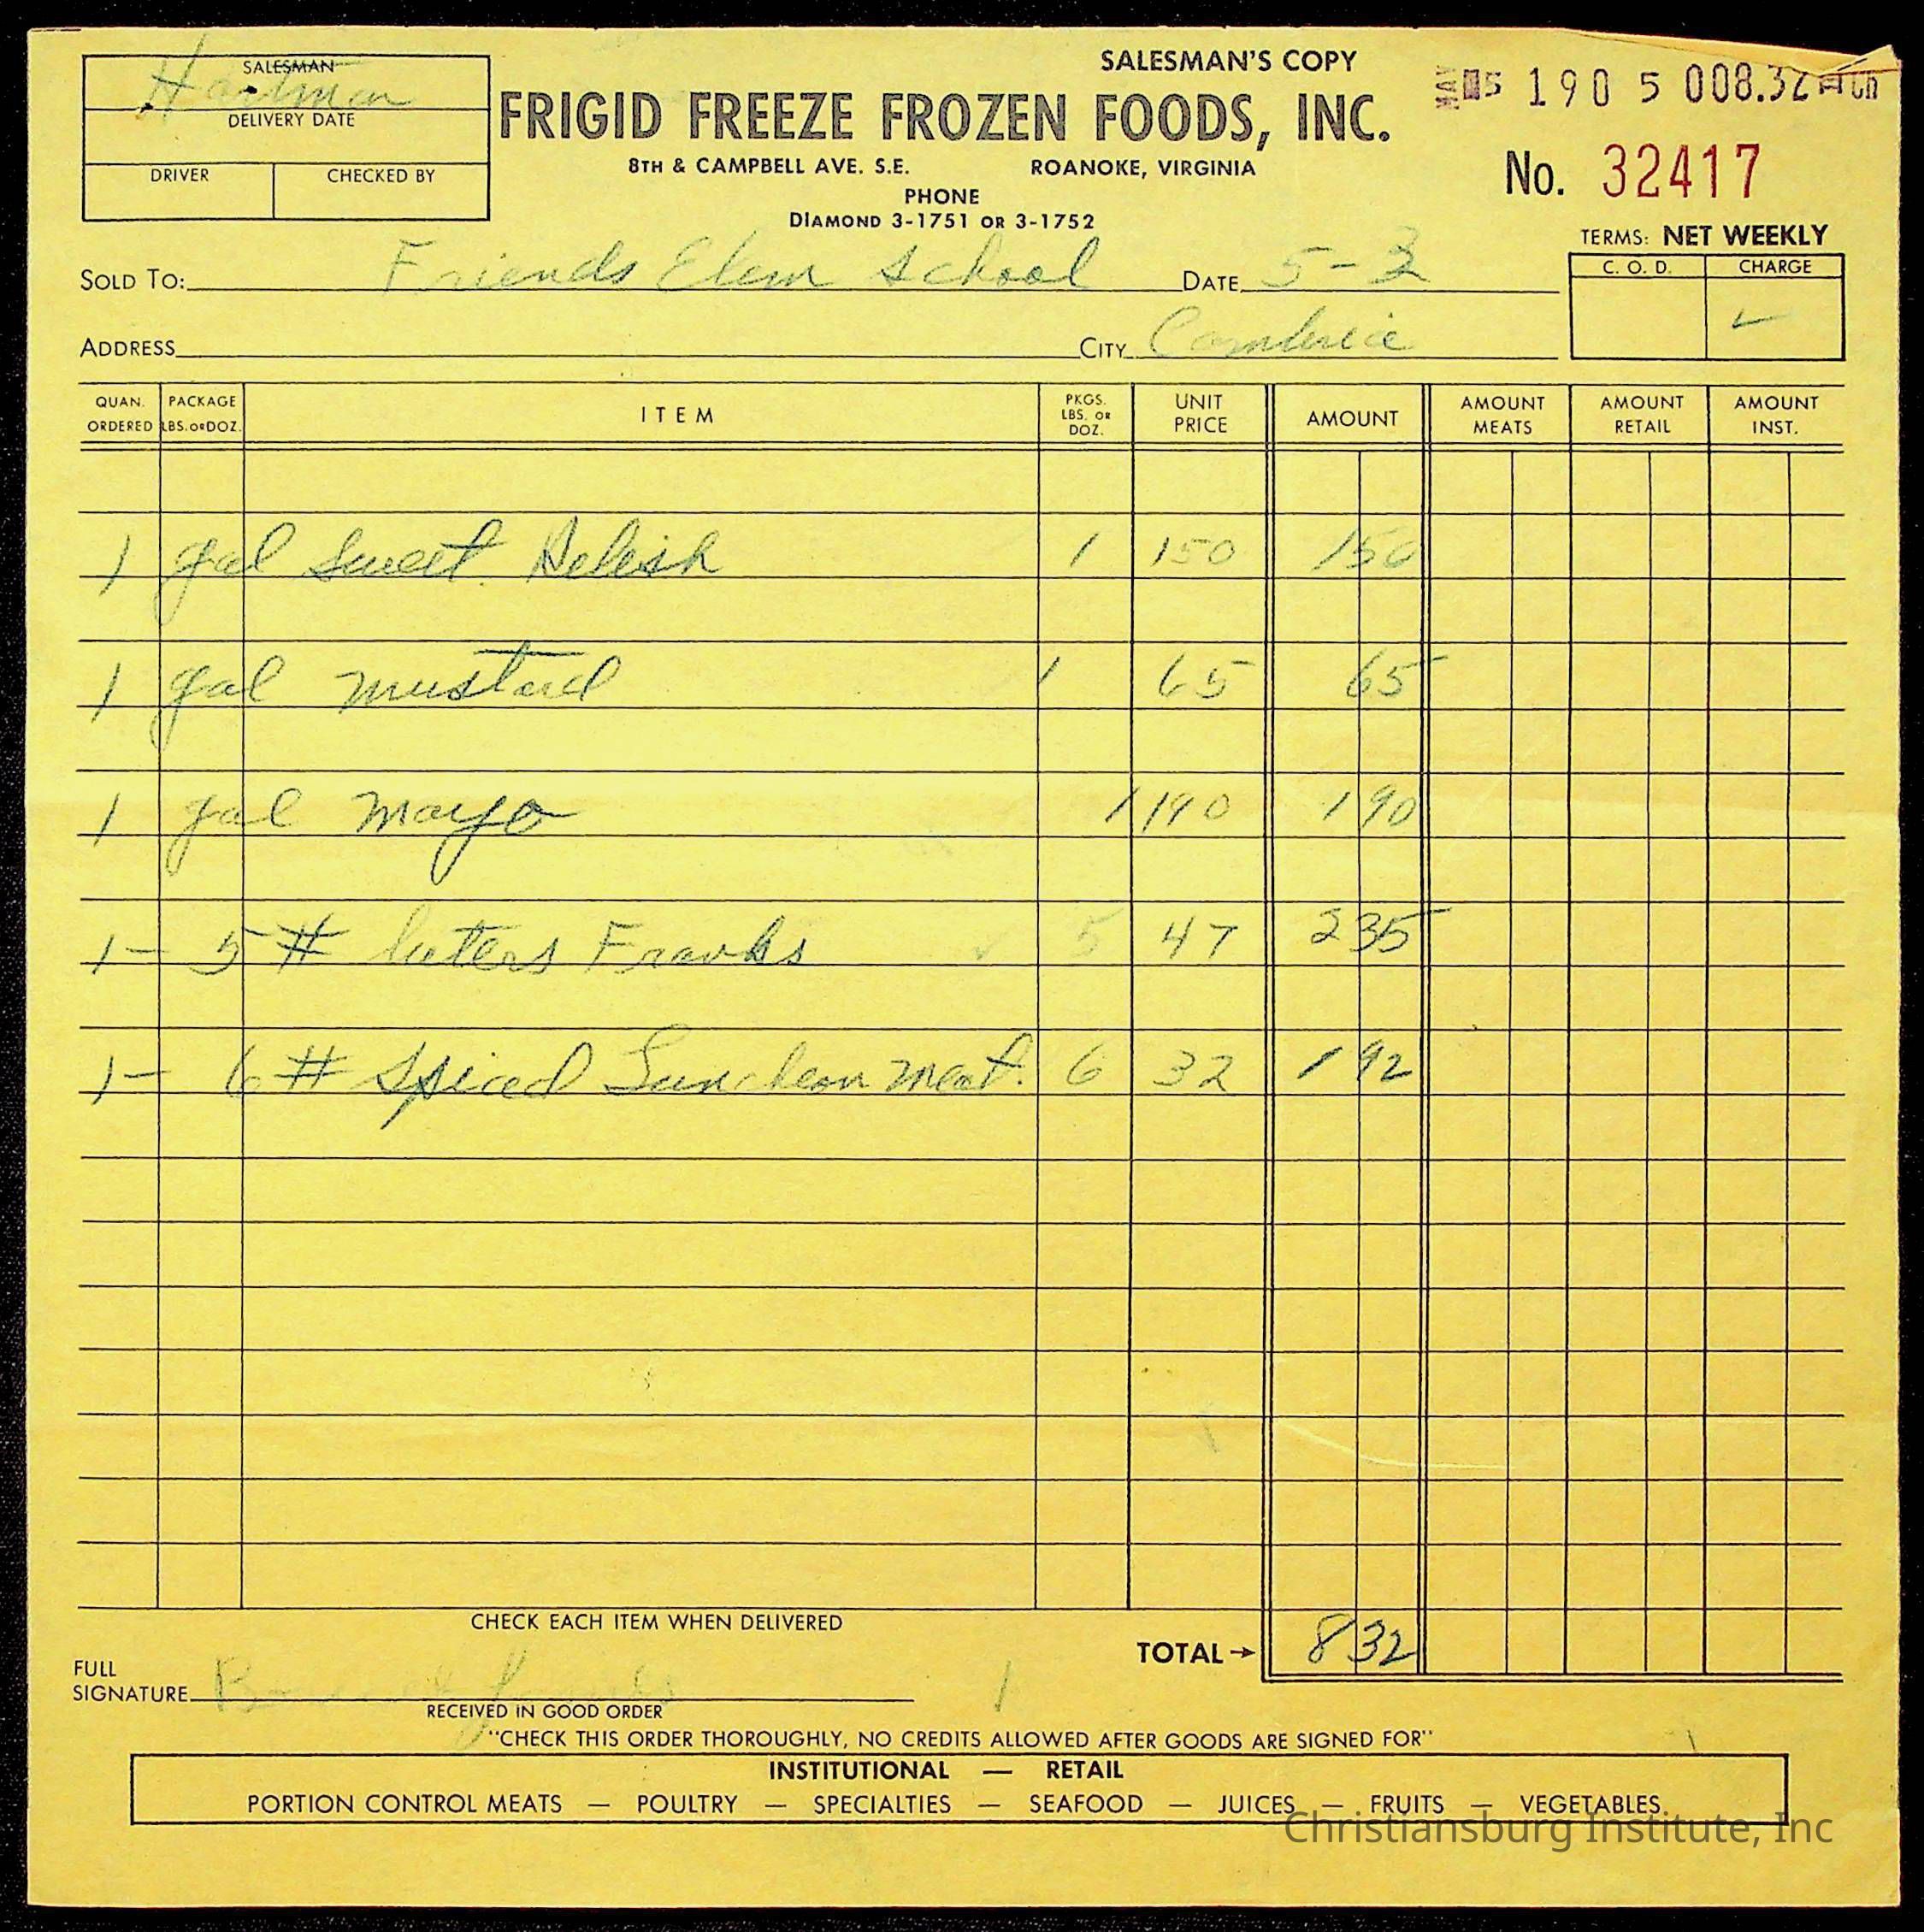 SALESMAN
Hartman
DELIVERY DATE
DRIVER CHECKED BY
SALESMAN'S COPY
FRIGID FREEZE FROZEN FOODS, INC.
8TH & CAMPBELL AVE. S.E. ROANOKE, VIRGINIA
PHONE
DIAMOND 3-1751 OR 3-1752
MAY 5 190 5 008.32
No. 32417
TERMS: NET WEEKLY
C. O. D. CHARGE
✓
SOLD TO: Friends Elem School DATE 5-3
ADDRESS CITY Cambria
QUAN. ORDERED PACKAGE LBS. OR DOZ. ITEM PKGS. LBS. OR DOZ. UNIT PRICE AMOUNT AMOUNT MEATS AMOUNT RETAIL AMOUNT INST.
1 gal Sweet Relish 1 150 150
1 gal mustard 1 65 65
1 gal mayo 1 190 190
1- 5 # Franks 5 47 235
1- 6 # Spiced Luncheon meat. 6 32 192
CHECK EACH ITEM WHEN DELIVERED
TOTAL → 832
FULL SIGNATURE
RECEIVED IN GOOD ORDER
"CHECK THIS ORDER THOROUGHLY, NO CREDITS ALLOWED AFTER GOODS ARE SIGNED FOR"
INSTITUTIONAL — RETAIL
PORTION CONTROL MEATS — POULTRY — SPECIALTIES — SEAFOOD — JUICES — FRUITS — VEGETABLES.
Christiansburg Institute, Inc